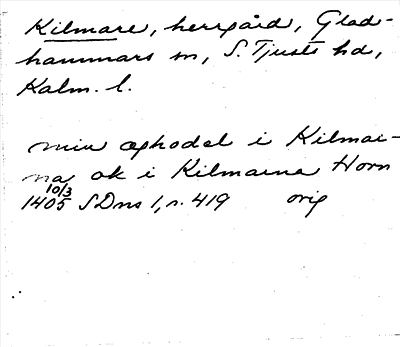 Kilmare, herrgård, Glad-
hammars sn, S. Tjusts hd,
Kalm. l.
min æghodel i Kilmai-
na ok i Kilmaina Horn
10/3
1405 SDns 1, s. 419 orig